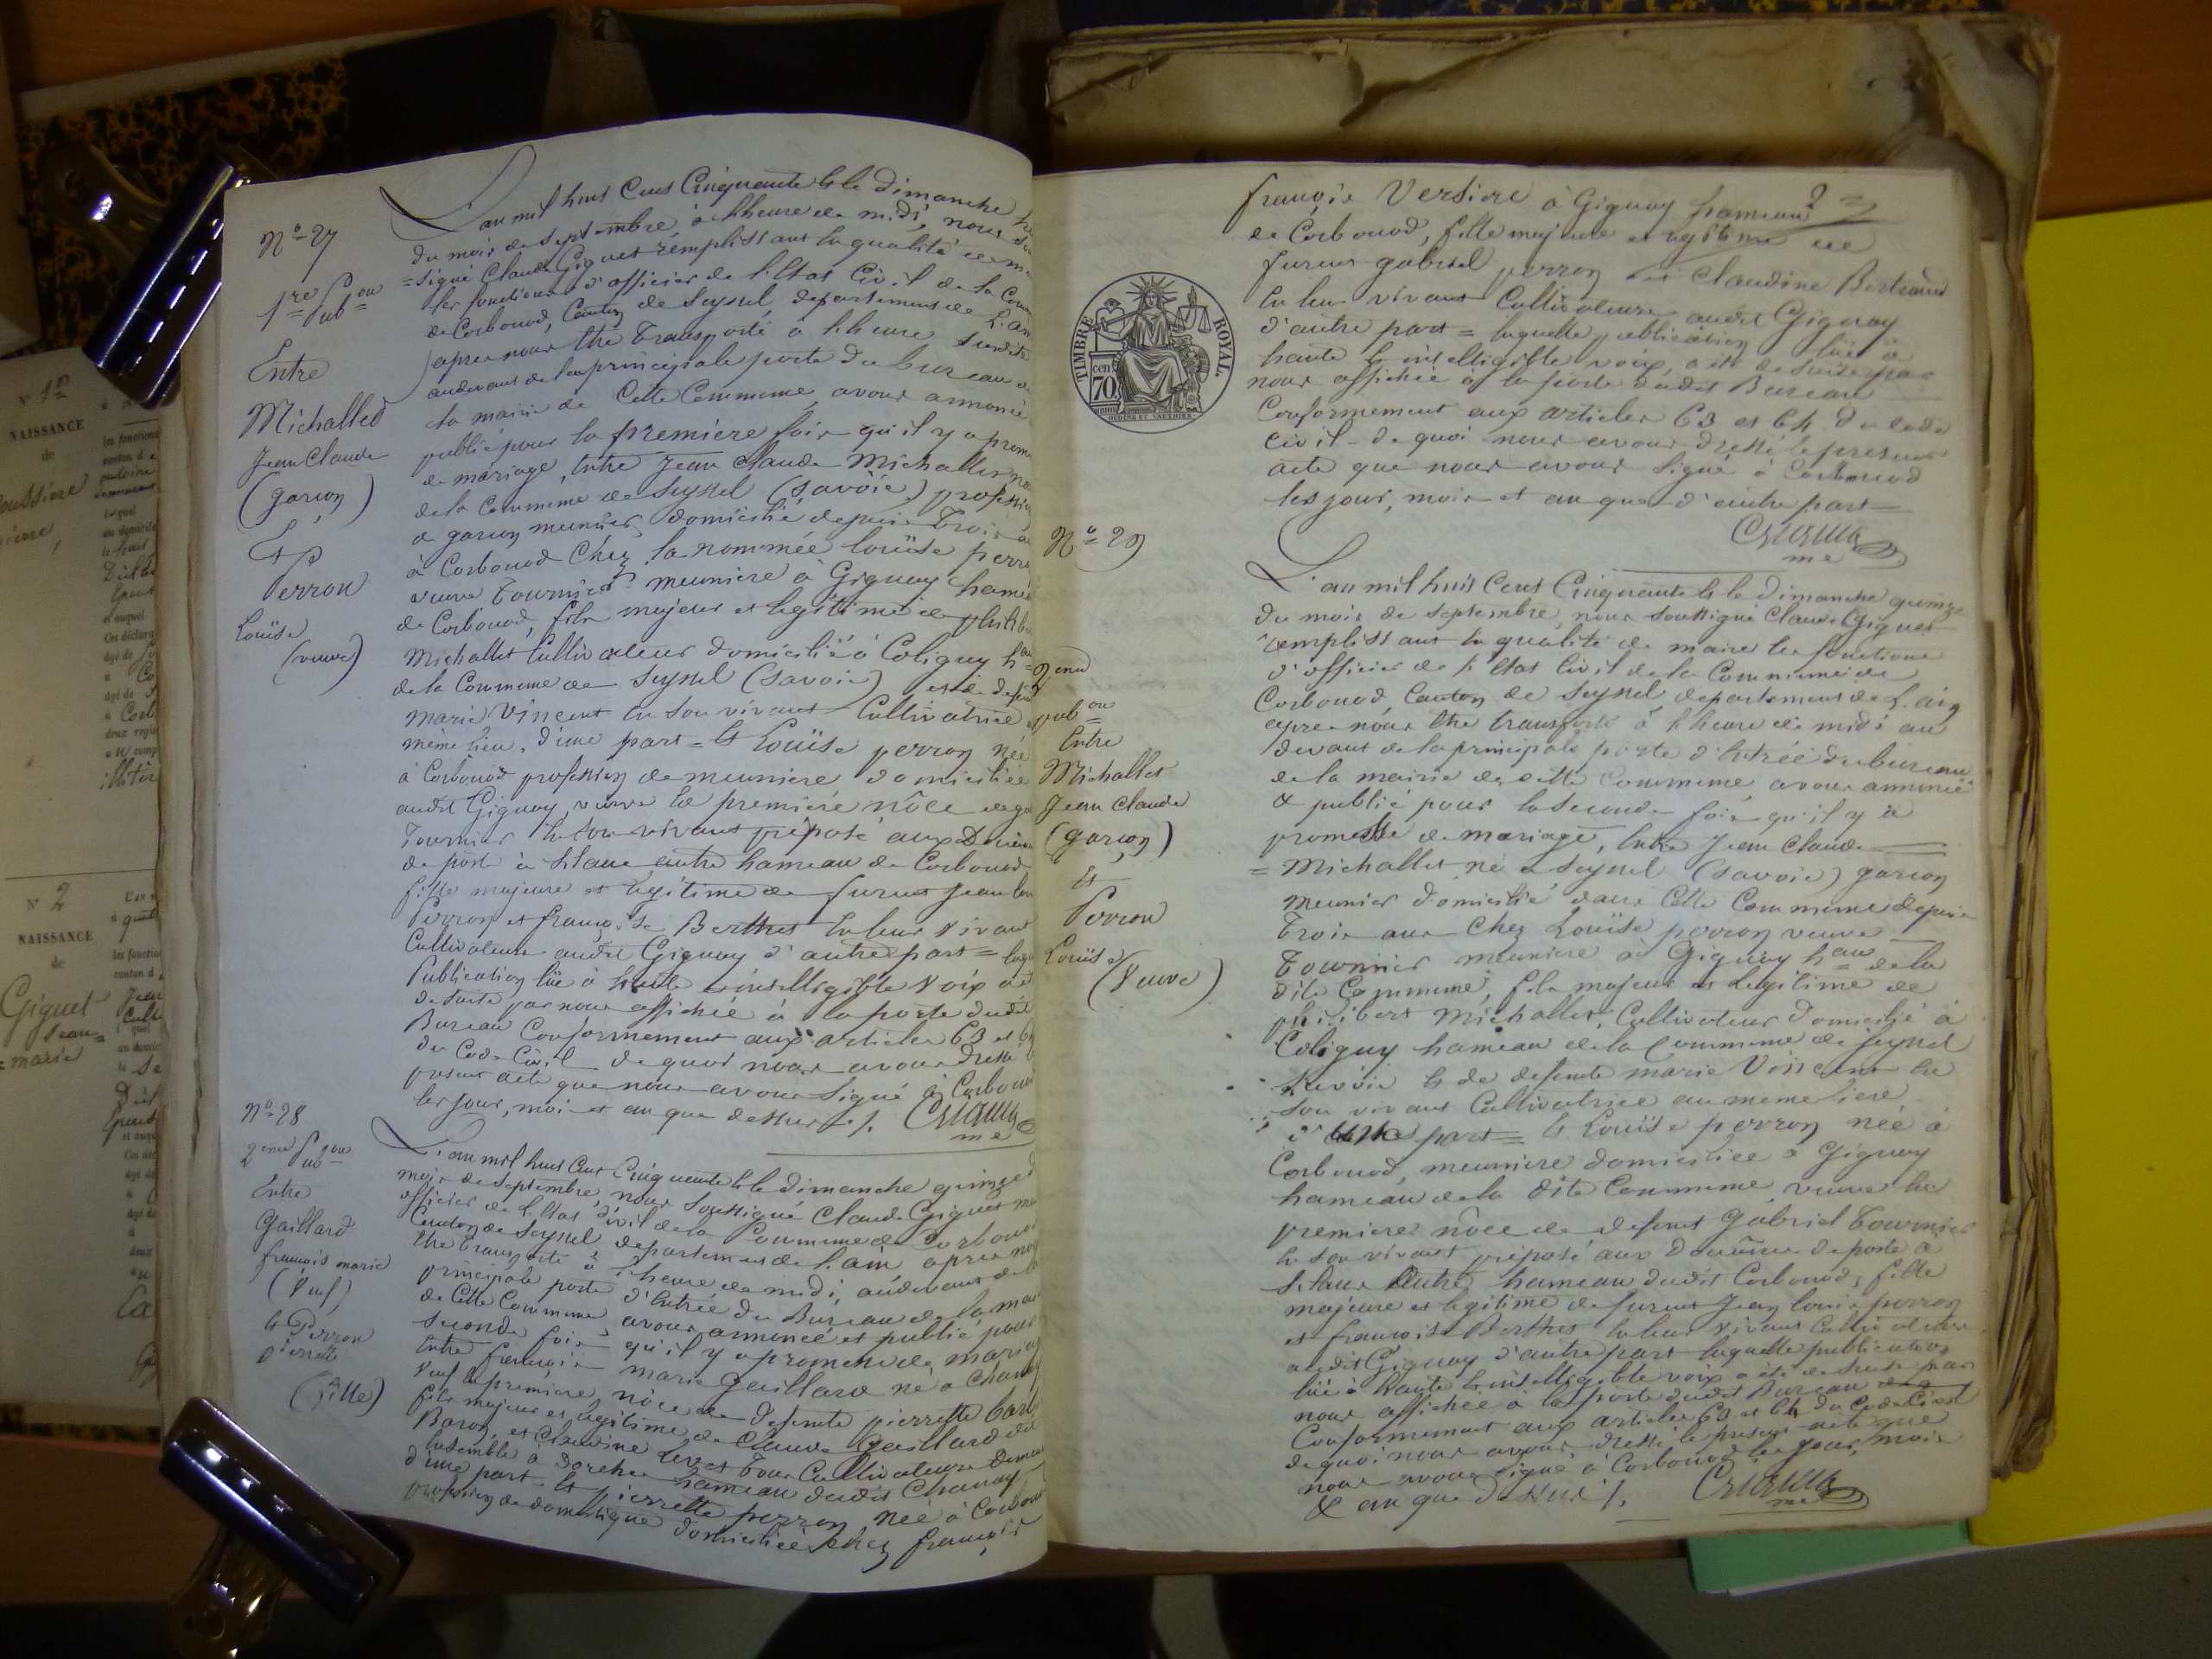 N° 27
1re Pub on
Entre
Michallet
Jean Claude
(garçon)
Et
Perron
Louïse
(veuve)
L'an mil huit Cent Cinquante & le dimanche
du mois de septembre, à l'heure de midi, nous
=signé Claude Giguet remplissant la qualité de
les fonctions d'officier de l'Etat Civil de la Com
de Corbonod, Canton de Seyssel, departement de L'ain
apres nous être transporté à l'heure susdite
audevant de la principale porte du bureau de
la mairie de Cette Commune, avons annoncé
publié pour la premiere fois qu'il y a prom
de mariage, entre Jean Claude Michallet
de la Commune de Seyssel (Savoie) profession
de garçon meunier, domicilié depuis trois
à Corbonod Chez la nommée Louïse perr
veuve Tournier meuniere à Gignay hame
de Corbonod, fils majeur et legitime de philib
Michallet Cultivateur domicilié à Coligny h
de la Commune de Seyssel (Savoie) et de defun
marie Vincent en son vivant Cultivatrice
même lieu, d'une part = & Louïse perron née
à Corbonod profession de meuniere domiciliée
audit Gignay, veuve en premiere nôce de
Tournier en son vivant préposé aux Douan
de poste à autre hameau de Corbonod
fille majeure et legitime de furent Jean lou
Perron et françoise Berthet en leur vivant
Cultivateurs audit Gignay d'autre part = laq
Publication lüe à haute & intelligible voix a
de suite par nous affichée à la porte dudit
Bureau Conformement aux articles 63 et 64
du Code Civil de quoi nous avons dressé l
present acte que nous avons signé à Corbonod
les jour, mois et an que dessus ./.
me
N° 28
2eme Pub on
Entre
Gaillard
françois marie
(Veuf)
& Perron
Pierrette
(fille)
L'an mil huit Cent Cinquante & le dimanche quinze
mois de septembre, nous soussigné Claude Giguet m
officier de l'Etat Civil de la Commune de Corbonod
Canton de Seyssel departement de l'ain apres nou
être transporté à l'heure de midi, audevant de l
principale porte d'entrée du Bureau de la mai
de Cette Commune avons annoncé et publié pour
seconde fois qu'il y a promesse de mariag
Entre françois marie gaillard né à Chan
veuf en premiere nôce de defunte pierrette
fils majeur et legitime de Claude Gaillard dit
Baron, et Claudine tous Cultivateurs
ensemble à Dorches hameau dudit Chanay
d'une part & pierrette perron née à Corbonod
profession de domestique domiciliée chez françois
2
françois Versiere à Gignay hameau
de Corbonod, fille majeure et legitime de
furent gabriel perron et Claudine Bertrand
en leur vivant Cultivateurs audit Gignay
d'autre part = laquelle publication lüe à
haute & intelligible voix, a été de suite par
nous affichée à la porte dudit Bureau
Conformement aux articles 63 et 64 du Code
civil de quoi nous avons dressé le present
acte que nous avons signé à Corbonod
les jour, mois et an que d'autre part
me
TIMBRE ROYAL.
70 cen
N° 29
2eme
pub on
Entre
Michallet
Jean Claude
(garçon)
Et
Perron
Louïse
(Veuve)
L'an mil huit Cent Cinquante & le dimanche quinze
du mois de septembre, nous soussigné Claude Giguet
remplissant la qualité de maire les fonctions
d'officier de l'Etat Civil de la Commune de
Corbonod, Canton de Seyssel departement de L'ain
apres nous être transporté à l'heure de midi au
devant de la principale porte d'entrée du bureau
de la mairie de cette Commune avons annoncé
& publié pour la seconde fois qu'il y a
promesse de mariage, entre Jean Claude
= Michallet né à Seyssel (Savoie) garçon
meunier domicilié dans Cette Commune depuis
trois ans Chez Louïse perron veuve
Tournier meuniere à Gignay hau de la
dite Commune, fils majeur et legitime de
philibert Michallet, Cultivateur domicilié à
Coligny hameau de la Commune de Seyssel
Savoie & de defunte marie Vincent en
son vivant Cultivatrice au meme lieu
d'une part = & Louïse perron née à
Corbonod, meuniere domiciliée à Gignay
hameau de la dite Commune, veuve en
premiere nôce de defunt Gabriel Tournier
en son vivant préposé aux Douânes de poste à
autre hameau dudit Corbonod, fille
majeure et legitime de furent Jean louis perron
et françoise Berthet en leur vivant Cultivateurs
audit Gignay d'autre part laquelle publication
lüe à haute & intelligible voix a été de suite par
nous affichée à la porte dudit Bureau
Conformement aux articles 63 et 64 du Code Civil
de quoi nous avons dressé le present acte que
nous avons signé à Corbonod les jour, mois
& an que dessus ./.
me
N° 1er
NAISSANCE
de
N° 2
NAISSANCE
de
Giguet
Jean=
=marie